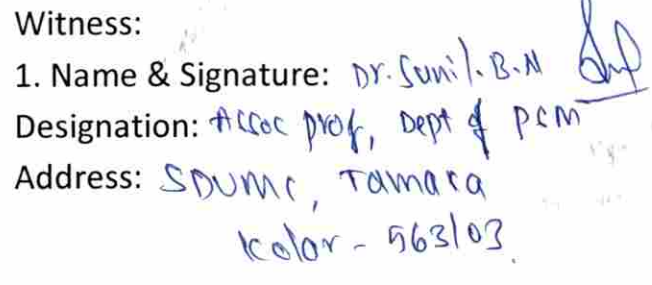 Witness:
1. Name & Signature: Dr. Sunil. B.N
Designation: Assoc prof, Dept of PCM
Address: SDUMC, Tamaka
Kolar - 563103